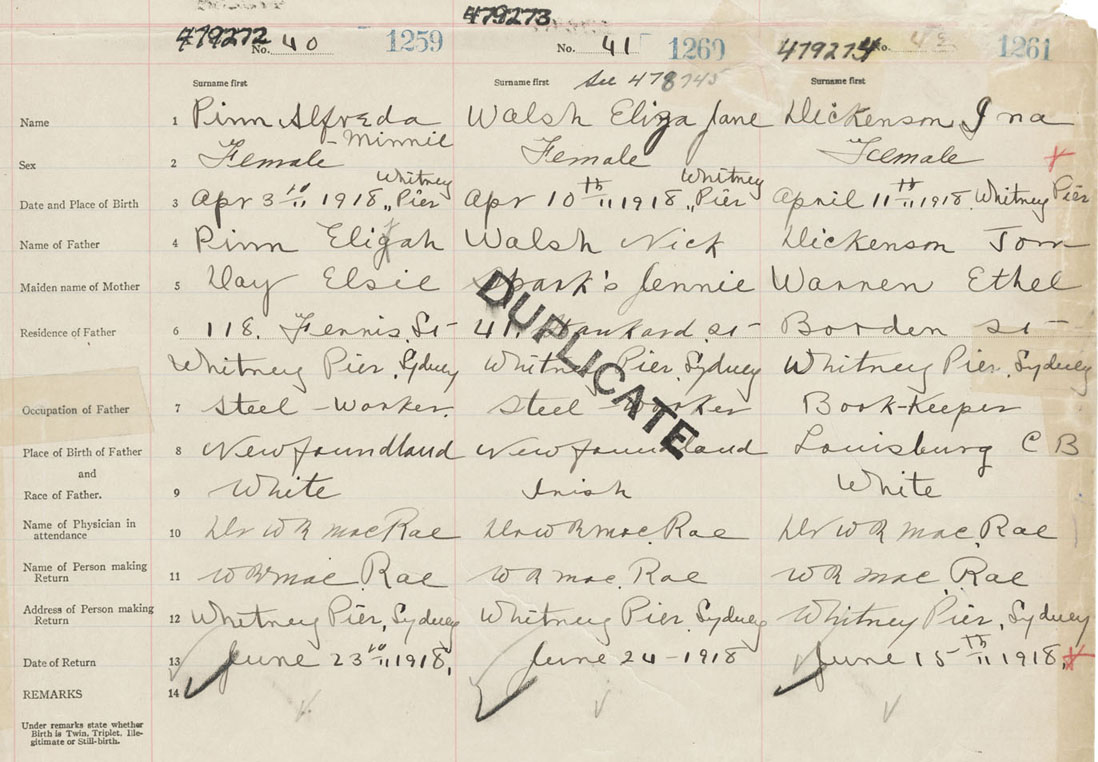 479273
479272 No. 40 1259 No. 41 1260 479274 No. 1261
Surname first Surname first See 478745 Surname first
Name 1 Pinn Alfreda Walsh Eliza Jane Dickenson Ina
- Minnie
Sex 2 Female Female Female
Whitney Whitney
Date and Place of Birth 3 Apr 3 1918 „ Pier Apr 10th 1918 „ Pier April 11th 1918. Whitney Pier
Name of Father 4 Pinn Eligah Walsh Nick Dickenson Tom
Maiden name of Mother 5 Day Elsie Spark's Jennie Warren Ethel
Residence of Father 6 118. Fennis. St- 41. St- Borden St-
Whitney Pier, Sydney Whitney Pier, Sydney Whitney Pier, Sydney
Occupation of Father 7 Steel - Worker. Steel - Worker Book-Keeper
Place of Birth of Father 8 Newfoundland Newfoundland Louisburg C B
and
Race of Father. 9 White Irish White
Name of Physician in
attendance 10 Dr W R MacRae Dr W R Mac. Rae Dr W R Mac. Rae
Name of Person making
Return 11 W R Mac. Rae W R Mac. Rae W R Mac. Rae
Address of Person making
Return 12 Whitney Pier, Sydney Whitney Pier, Sydney Whitney Pier, Sydney
Date of Return 13 June 23 1918, June 24 - 1918 June 15th 1918,
REMARKS 14
Under remarks state whether
Birth is Twin, Triplet, Ille-
gitimate or Still-birth.
DUPLICATE